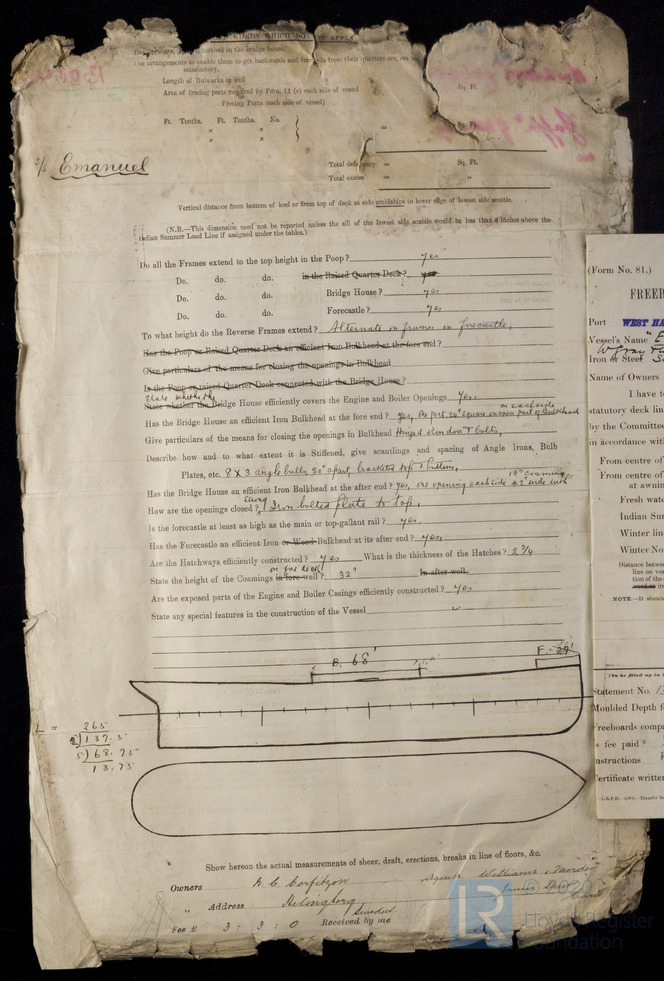 WORDS WHICH DO NOT APPLY
described in the bridge house.
The arrangements to enable them to get backwards and forwards from their quarters are, are
satisfactory.
Length of Bulwarks in well
Area of freeing ports required by Para. 11 (e) each side of vessel Sq Ft.
Freeing Ports (each side of vessel)
Ft. Tenths. Ft. Tenths. No.
× × = Sq. Ft.
× × =
s/s Emanuel
Total deficiency = Sq. Ft.
Total excess = "
Vertical distance from bottom of keel or from top of deck at side amidships to lower edge of lowest side scuttle.
(N.B.—This dimension need not be reported unless the sill of the lowest side scuttle would be less than 6 inches above the
Indian Summer Load Line if assigned under the tables.)
Do all the Frames extend to the top height in the Poop? yes
Do. do. do. in the Raised Quarter Deck? yes
Do. do. do. Bridge House? yes
Do. do. do. Forecastle? yes
To what height do the Reverse Frames extend? Alternate on frames in forecastle,
Has the Poop or Raised Quarter Deck an efficient Iron Bulkhead at the fore end?
Give particulars of the means for closing the openings in Bulkhead
Is the Poop or raised Quarter Deck connected with the Bridge House?
State whether the
State whether the Bridge House efficiently covers the Engine and Boiler Openings yes.
on each side
Has the Bridge House an efficient Iron Bulkhead at the fore end? yes, part 20" square part of Bulkhead
Give particulars of the means for closing the openings in Bulkhead Hinged iron door & bolts,
Describe how and to what extent it is Stiffened, give scantlings and spacing of Angle Irons, Bulb
Plates, etc. 8 X 3 angle bulbs 30" apart, bracketed top & bottom,
18" coaming
Has the Bridge House an efficient Iron Bulkhead at the after end? yes, one opening each side 42" wide with
How are the openings closed? Iron bolted plate to top.
Is the forecastle at least as high as the main or top-gallant rail? yes.
Has the Forecastle an efficient Iron or Wood Bulkhead at its after end? yes,
Are the Hatchways efficiently constructed? yes What is the thickness of the Hatches? 2 3/4
on fore deck
State the height of the Coamings in fore well? 32" In after well
Are the exposed parts of the Engine and Boiler Casings efficiently constructed? yes
State any special features in the construction of the Vessel
B. 68' F. 29'
L = 265
2)137.5
5)68.75
13.75
Show hereon the actual measurements of sheer, draft, erections, breaks in line of floors, &c.
Owners N. C. Corfitzon Agents Williams
" Address Helsingborg
Sweden.
Fee £ 3 : 3 : 0 Received by me
(Form No. 81.)
FREEB
Port WEST HA
Vessel's Name "E
W Gray
Iron or Steel S
Name of Owners
I have to
statutory deck lin
by the Committee
in accordance wit
From centre of
From centre of
at awnin
Fresh wate
Indian Sum
Winter lin
Winter No
Distance betwee
line on ves
tion of the
NOTE.—It shoul
(To be filled up in t
Statement No. 13
Moulded Depth f
Freeboards compu
Is fee paid?
Instructions
Certificate written
LR © 2020
Lloyd's Register
Foundation